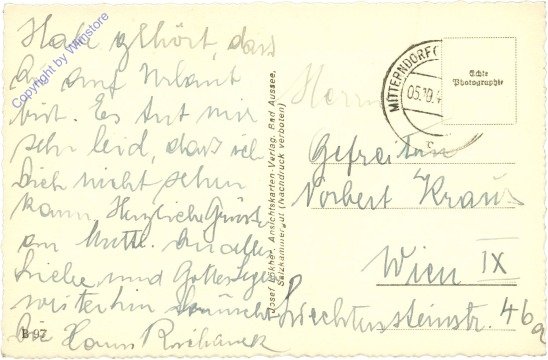 Habe gehört, dass
du auf Urlaub
bist. Es tut mir
sehr leid, dass ich
Dich nicht sehen
kann, Herzliche Grüsse
an Mutti. An alles
Liebe und Gottes Segen
weiterhin wünscht
Dir Hans
B 97
Copyright by Wimstore
Josef Lökher, Ansichtskarten-Verlag, Bad Aussee,
Salzkammergut (Nachdruck verboten)
MITTERNDORF
05.10.4
Echte
Photographie
Herrn
Gefreiten
Norbert Kraus
Wien IX
Liechtensteinstr. 46a